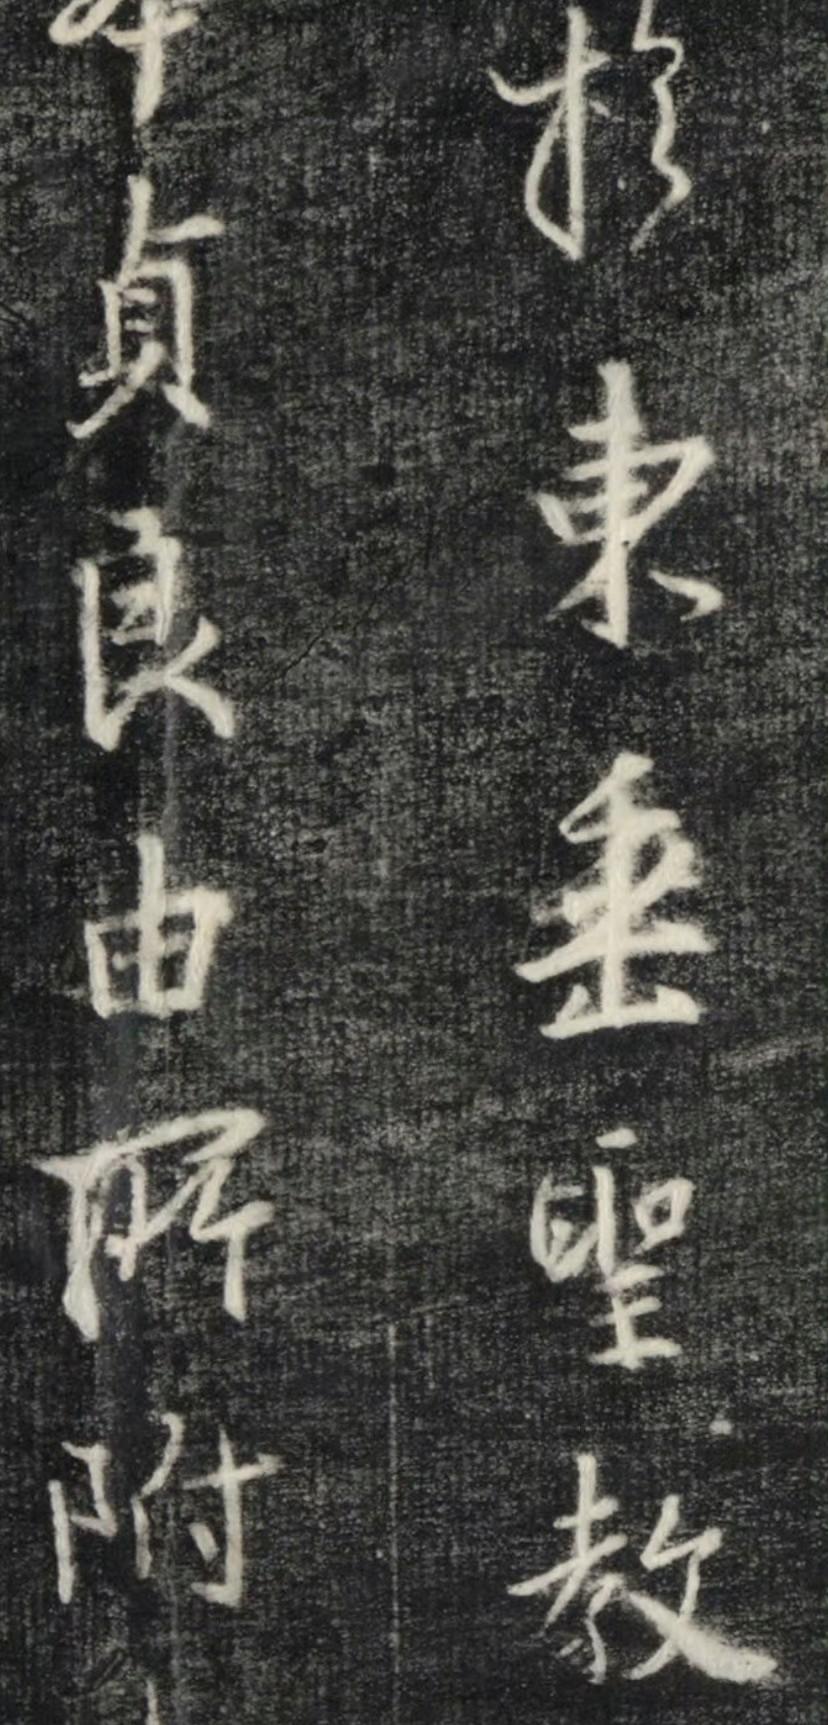 於東垂聖教
本貞良由所附